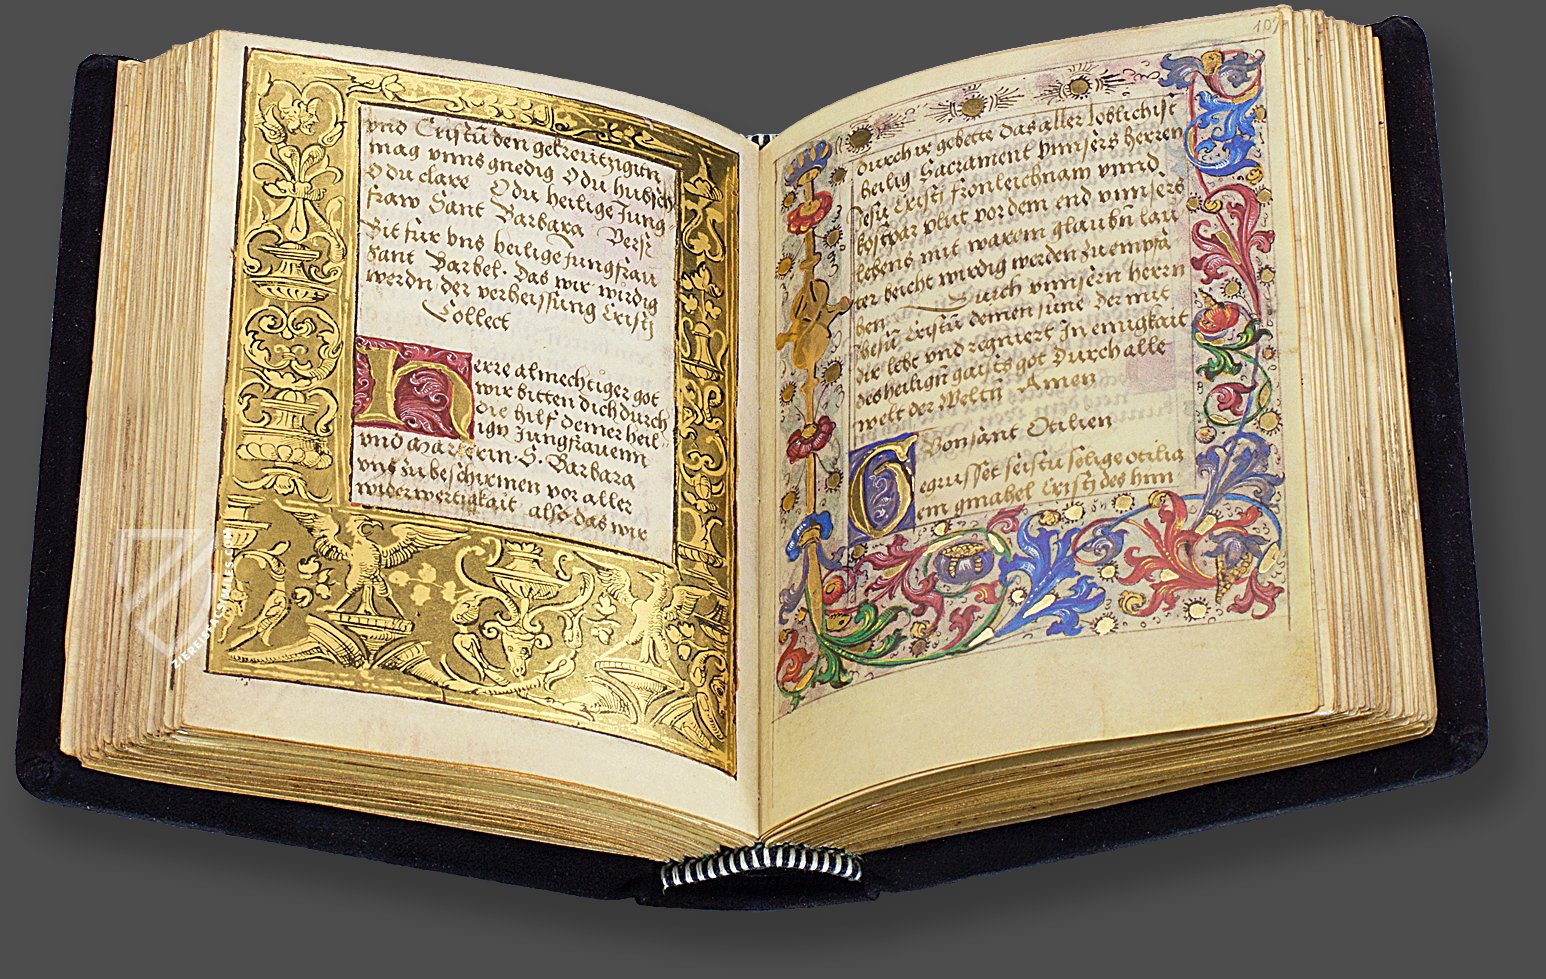 vnd Cristū den gekreutzigten
mag vnns gnedig O du hubsch
O du clare O du heilige Jung
fraw Sant Barbara Versi
Bit fur vns heilige jungfrau
Sant Barbel. das wir wirdig
werdn der verheissung Cristi
Collect
Herre almechtiger got
wir bitten dich durch
die hilf deiner heil
ign Jungfrauenn
vnd Marterin. S. Barbara
vns zu beschirmen vor aller
widerwertigkait also das wir
107
durch ir gebette das aller loblichist
heilig Sacrament vnnsers herren
Jesu Cristi fronleichnam vnnd
kostpar plut vor dem end vnnsers
lebens mit warem glaubn lau
ter beicht wirdig werden zu empfa
hen Durch vnnsern herrn
Jhesū Cristū deinen sune der mit
dir lebt vnd regniert In einigkait
des heilign gaists got Durch alle
welt der Weltn Amen
Von sant Otilien
Gegrusset seistu selige otilig
ein gmahel Cristi des him
ZIEREIS FACSIMILES.COM